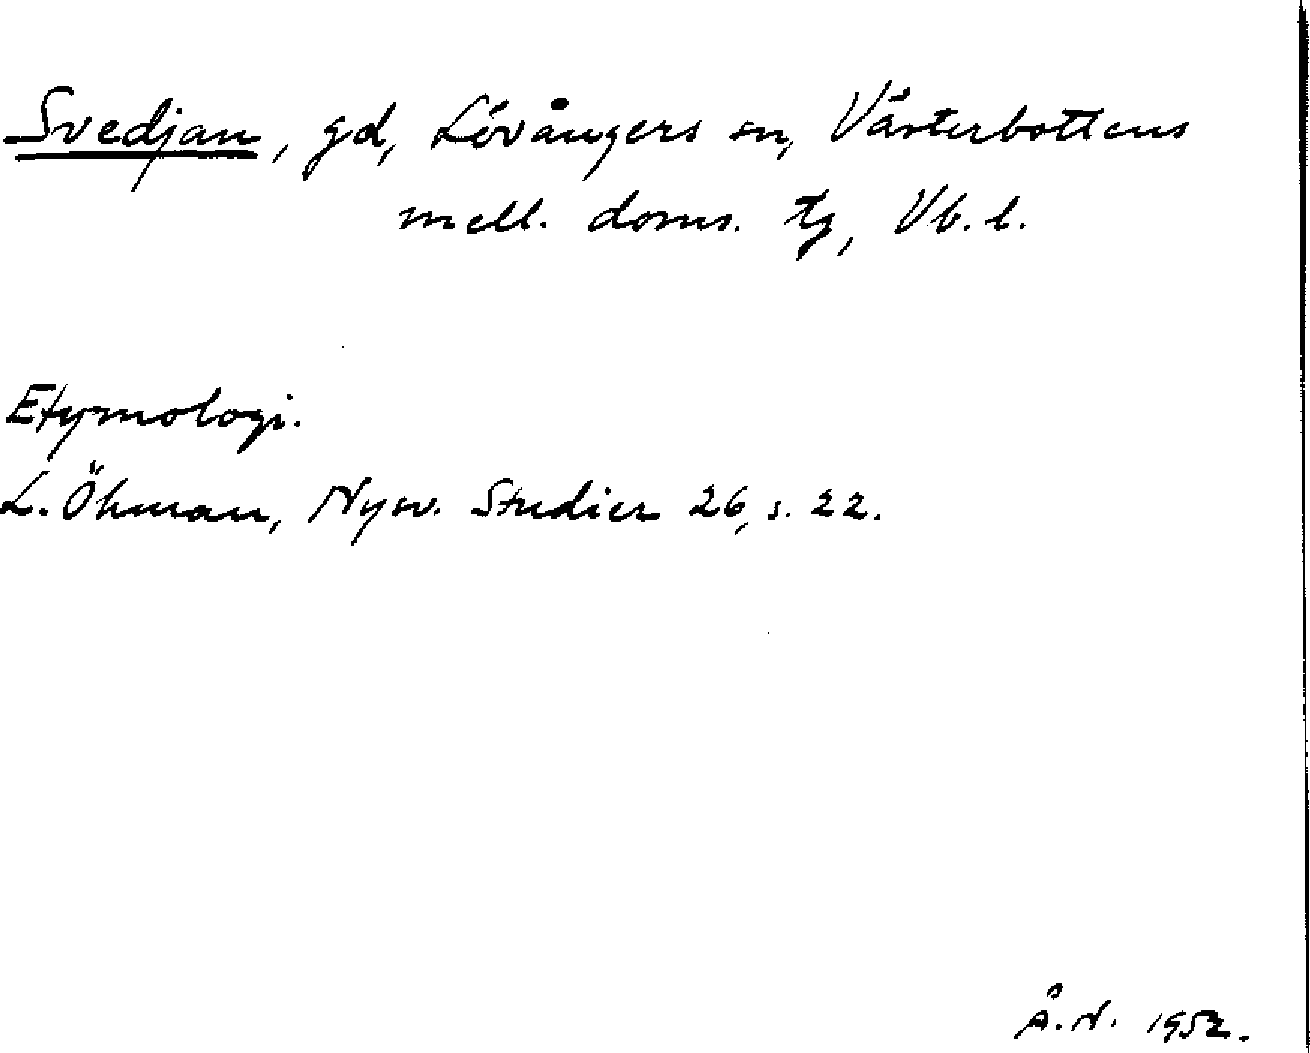 Svedjan, gd, Lövångers sn, Västerbottens
mell. doms. tg, Vb. l.
Etymologi.
L. Öhman, Nysv. Studier 26, s. 22.
Å. N. 1952.